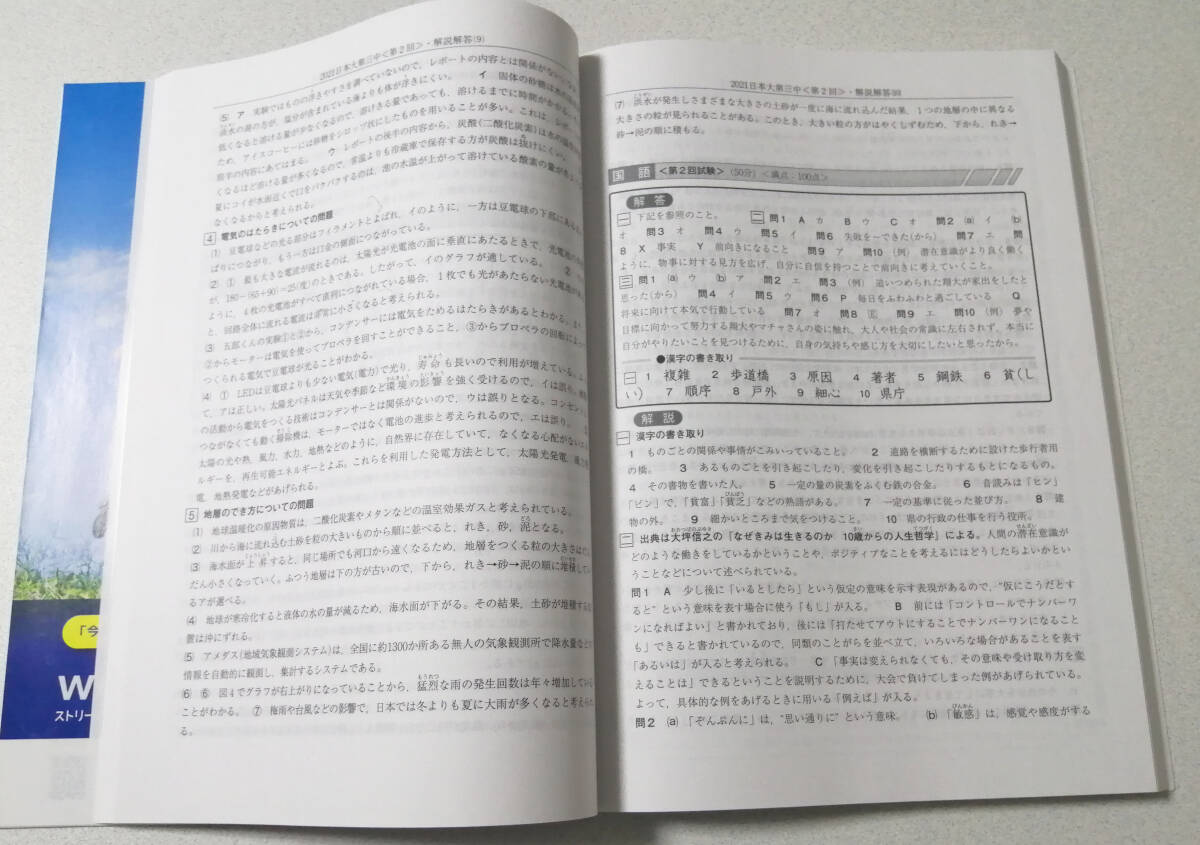 2021日本大第三中<第2回>・解説解答(9)
⑤ ア 実験ではものの浮きやすさを調べていないので、レポートの内容とは関係がない。
イ 固体の砂糖は
淡水の海の方が、塩分が含まれている海よりも体が浮きにくい。
低くなると溶ける量が少なくなるので、溶けきる量であっても、溶けるまでに時間がかかる。
ため、アイスコーヒーには砂糖をシロップ状にしたものを用いることが多い。これは、レポー
前半の内容にあてはまる。 ウ レポートの後半の内容から、炭酸(二酸化炭素)は水の温
くなるほど溶ける量が多くなるので、常温よりも冷蔵庫で保存する方が炭酸は抜けにくい。
夏にコイが水面近くで口をパクパクするのは、池の水温が上がって溶けている酸素の量が
なくなるからと考えられる。
4 電気のはたらきについての問題
(1) 豆電球などの光る部分はフィラメントとよばれ、イのように、一方は豆電球の下部にある
ばりにつながり、もう一方は口金の側面につながっている。
(2) ① 最も大きな電流が流れるのは、太陽光が光電池の面に垂直にあたるときで、光電池の
が、180-(65+90)=25(度)のときである。したがって、イのグラフが適している。 ②
ように、4枚の光電池がすべて直列につながれている場合、1枚でも光があたらない光電池があ
と、回路全体に流れる電流は非常に小さくなると考えられる。
(3) 五郎くんの実験①と②から、コンデンサーには電気をためるはたらきがあるとわかる。また、
②からモーターは電気を使ってプロペラを回すことができること、③からプロペラの回転によって
つくられる電気で豆電球が光ることがわかる。
(4) ① LEDは豆電球よりも少ない電気(電力)で光り、寿命も長いので利用が増えている。
て、アは正しい。太陽光パネルは天気や季節など環境の影響を強く受けるので、イは誤り。
の活動から電気をつくる技術はコンデンサーとは関係がないので、ウは誤りとなる。コンセン
つながなくても動く掃除機は、モーターではなく電池の進歩と考えられるので、エは誤り。
太陽の光や熱、風力、水力、地熱などのように、自然界に存在していて、なくなる心配がないエ
ルギーを、再生可能エネルギーとよぶ。これらを利用した発電方法として、太陽光発電、風力発
電、地熱発電などがあげられる。
5 地層のでき方についての問題
(1) 地球温暖化の原因物質は、二酸化炭素やメタンなどの温室効果ガスと考えられている。
(2) 川から海に流れ込む土砂を粒の大きいものから順に並べると、れき、砂、泥となる。
(3) 海水面が上昇すると、同じ場所でも河口から遠くなるため、地層をつくる粒の大きさは
だん小さくなっていく。ふつう地層は下の方が古いので、下から、れき→砂→泥の順に堆積してい
るアが選べる。
(4) 地球が寒冷化すると液体の水の量が減るため、海水面が下がる。その結果、土砂が堆積する
置は沖にずれる。
(5) アメダス(地域気象観測システム)は、全国に約1300か所ある無人の気象観測所で降水量など
情報を自動的に観測し、集計するシステムである。
(6) ⑥ 図4でグラフが右上がりになっていることから、猛烈な雨の発生回数は年々増加している
ことがわかる。 ⑦ 梅雨や台風などの影響で、日本では冬よりも夏に大雨が多くなると考えられ
る。
「今
W
ストリー
2021日本大第三中<第2回>・解説解答(10)
(7) 洪水が発生しさまざまな大きさの土砂が一度に海に流れ込んだ結果、1つの地層の中に異なる
大きさの粒が見られることがある。このとき、大きい粒の方がはやくしずむため、下から、れき→
砂→泥の順に積もる。
国語 <第2回試験> (50分) <満点:100点>
解答
一 下記を参照のこと。 二 問1 A カ B ウ C オ 問2 (a) イ (b)
オ 問3 オ 問4 ウ 問5 イ 問6 失敗を~できた(から) 問7 エ 問
8 X 事実 Y 前向きになること 問9 ア 問10 (例) 潜在意識がより良く働く
ように、物事に対する見方を広げ、自分に自信を持つことで前向きに考えていくこと。
三 問1 (a) ウ (b) ア 問2 エ 問3 (例) 追いつめられた翔大が家出をしたと
思った(から) 問4 イ 問5 ウ 問6 P 毎日をふわふわと過ごしている Q
将来に向けて本気で行動している 問7 オ 問8 E 問9 エ 問10 (例) 夢や
目標に向かって努力する翔大やマチャさんの姿に触れ、大人や社会の常識に左右されず、本当に
自分がやりたいことを見つけるために、自身の気持ちや感じ方を大切にしたいと思ったから。
●漢字の書き取り
一 1 複雑 2 歩道橋 3 原因 4 著者 5 鋼鉄 6 貧(し
い) 7 順序 8 戸外 9 細心 10 県庁
解説
一 漢字の書き取り
1 ものごとの関係や事情がこみいっていること。 2 道路を横断するために設けた歩行者用
の橋。 3 あるものごとを引き起こしたり、変化を引き起こしたりするもとになるもの。
4 その書物を書いた人。 5 一定の量の炭素をふくむ鉄の合金。 6 音読みは「ヒン」
「ビン」で、「貧富」「貧乏」などの熟語がある。 7 一定の基準に従った並び方。 8 建
物の外。 9 細かいところまで気をつけること。 10 県の行政の仕事を行う役所。
二 出典は大坪信之の『なぜきみは生きるのか 10歳からの人生哲学』による。人間の潜在意識が
どのような働きをしているかということや、ポジティブなことを考えるにはどうしたらよいかとい
うことなどについて述べられている。
問1 A 少し後に「いるとしたら」という仮定の意味を示す表現があるので、“仮にこうだとす
ると”という意味を表す場合に使う「もし」が入る。 B 前には「コントロールでナンバーワ
ンになればよい」と書かれており、後には「打たせてアウトにすることでナンバーワンになること
も」できると書かれているので、同類のことがらを並べ立て、いろいろな場合があることを表す
「あるいは」が入ると考えられる。 C 「事実は変えられなくても、その意味や受け取り方を変
えることは」できるということを説明するために、大会で負けてしまった例があげられている。
よって、具体的な例をあげるときに用いる「例えば」が入る。
問2 (a) 「ぞんぶんに」は、“思い通りに”という意味。 (b) 「敏感」は、感覚や感度がする